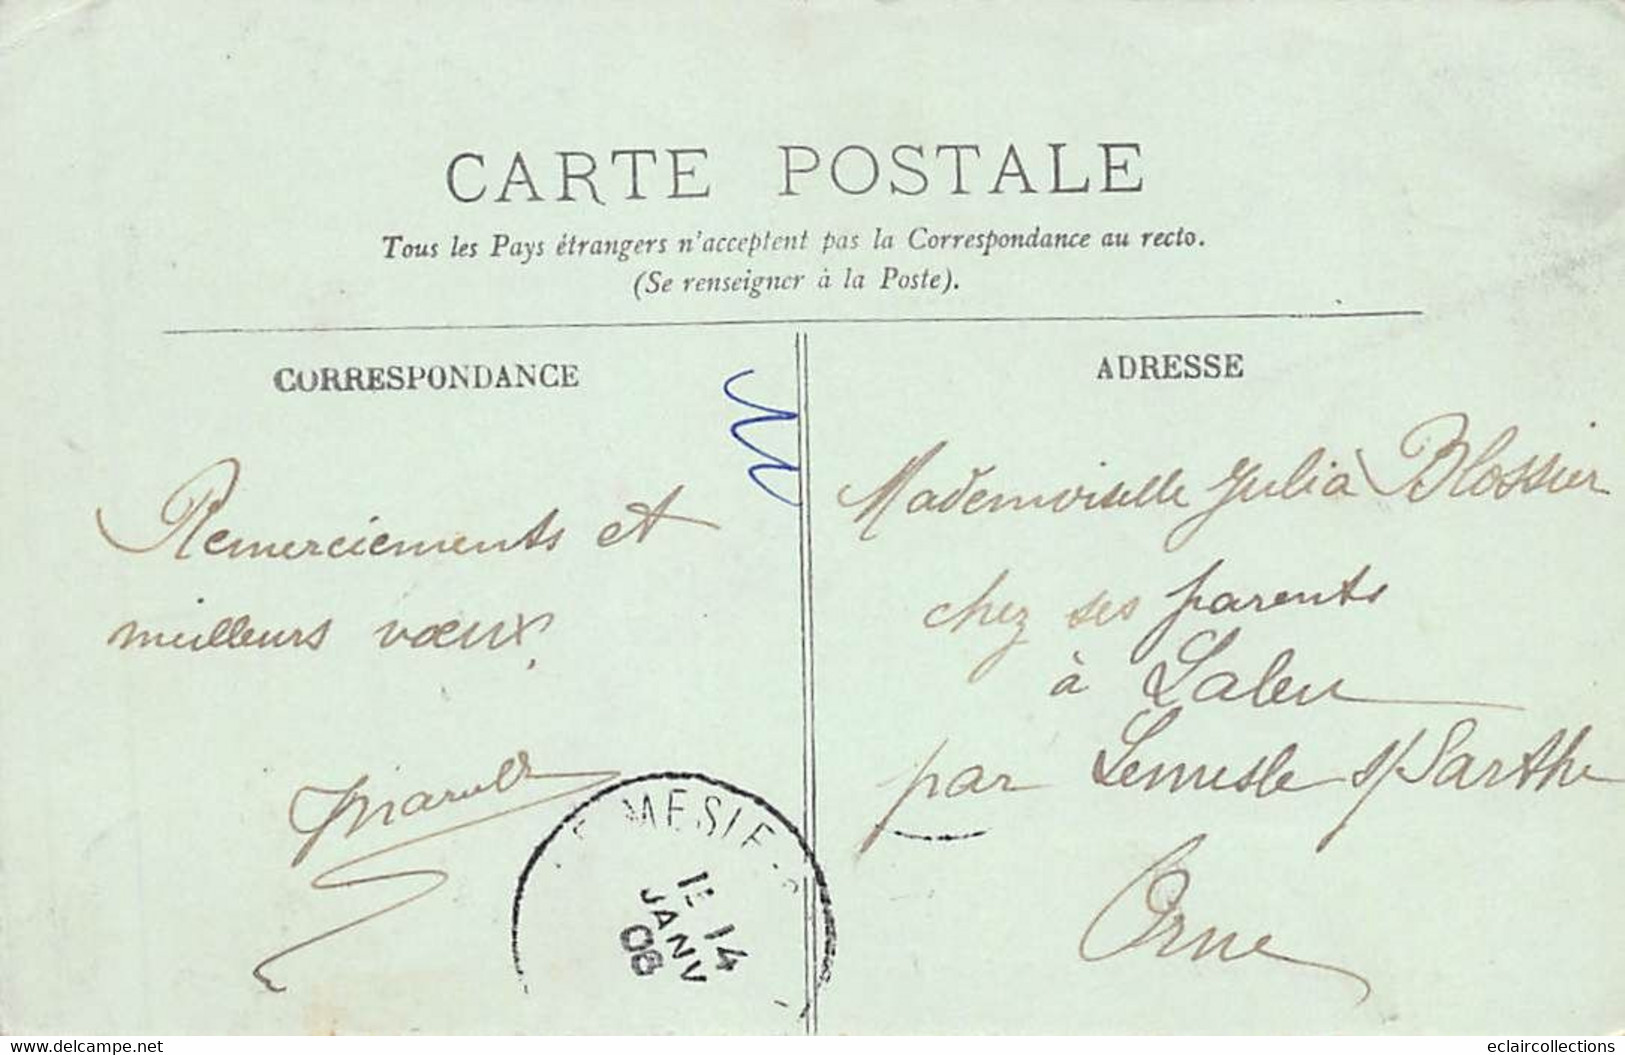 CARTE POSTALE
Tous les Pays étrangers n'acceptent pas la Correspondance au recto.
(Se renseigner à la Poste).
CORRESPONDANCE
ADRESSE
Remerciements et
meilleurs vœux.
Mademoiselle Julia Blossier
chez ses parents
à Laleu
par Lemesle s/ Sarthe
Orne
LE MESLE-S
14
JANV
08
www.delcampe.net
eclaircollections